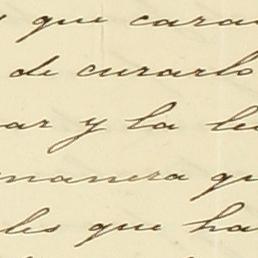 que cara
de curarlo
ar y la le
manera qu
les que ha